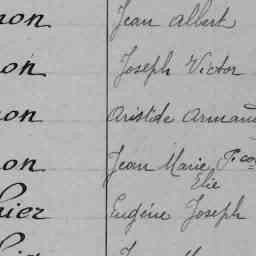 non Jean Albert
non Joseph Victor
non Aristide Armand
non Jean Marie
Elie
hier Eugène Joseph